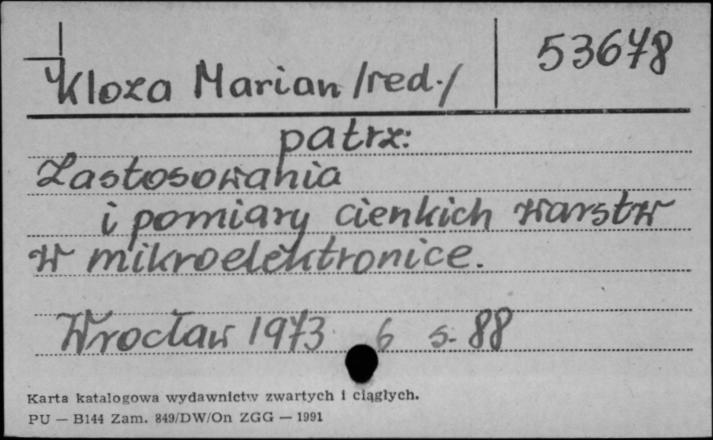 Kloza Marian /red./ 53678
patrz:
Zastosowania
i pomiary cienkich warstw
w mikroelektronice.
Wrocław 1973 6 s. 88
Karta katalogowa wydawnictw zwartych i ciągłych.
PU — B144 Zam. 849/DW/On ZGG — 1991